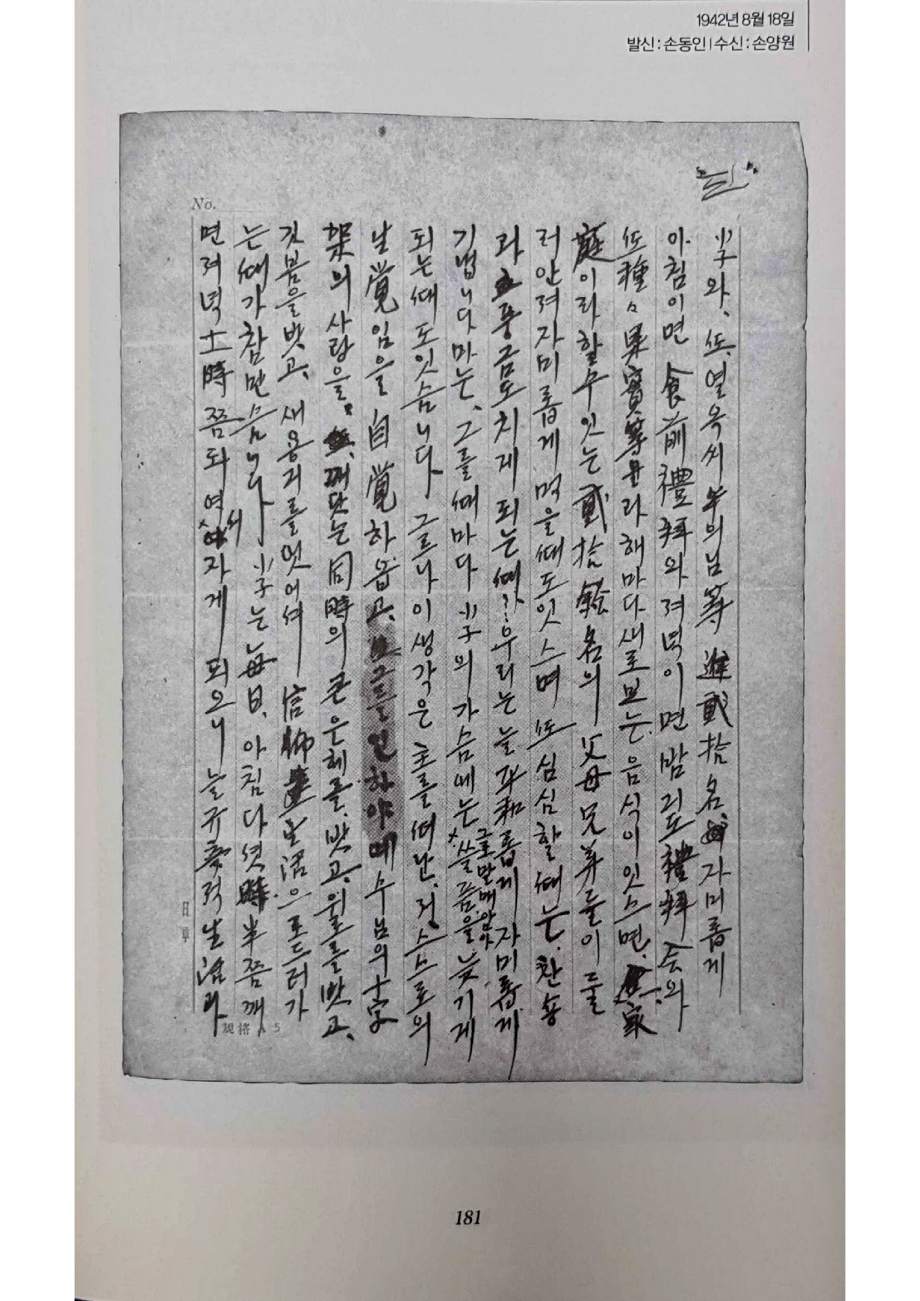 1942년 8월 18일
발신 : 손동인 | 수신 : 손양원
No.
小子와, 또, 열옥씨 부의님 等 近貳拾名 자미롭게
아침이면 食前禮拜와 져녁이면 밤긔도禮拜会와
또 種々 果實等물과 해마다 새로보는 음식이 잇스면,
庭이라 할수잇는 貳拾餘名의 父母兄弟들이 둘
러안져 자미롭게 먹을때도잇스며 또 심심할때는, 찬송
과 풍금도 치게 되는때? 우리는 늘 平和롭게 자미롭게
기냅니다마는, 그를때마다 小子의 가슴에는 쓸쯤을 늣기게
되는때도잇슴니다 그르나 이생각은 主를떠난, 저, 스스로의
날覚임을 自覚하옵고, 그를인하야 예수님의 十字
架의 사랑을, 깨닷는 同時의 큰은혜를, 밧고, 위로를 밧고,
깃붐을밧고, 새용긔를엇어셔 信仰生活으로드러가
는때가 참만슴니다 小子는 每日, 아침다섯時半쯤깨
면 져녁 十時쯤되여서 자게 되오니 늘규측적生活과
規格 A 5
181